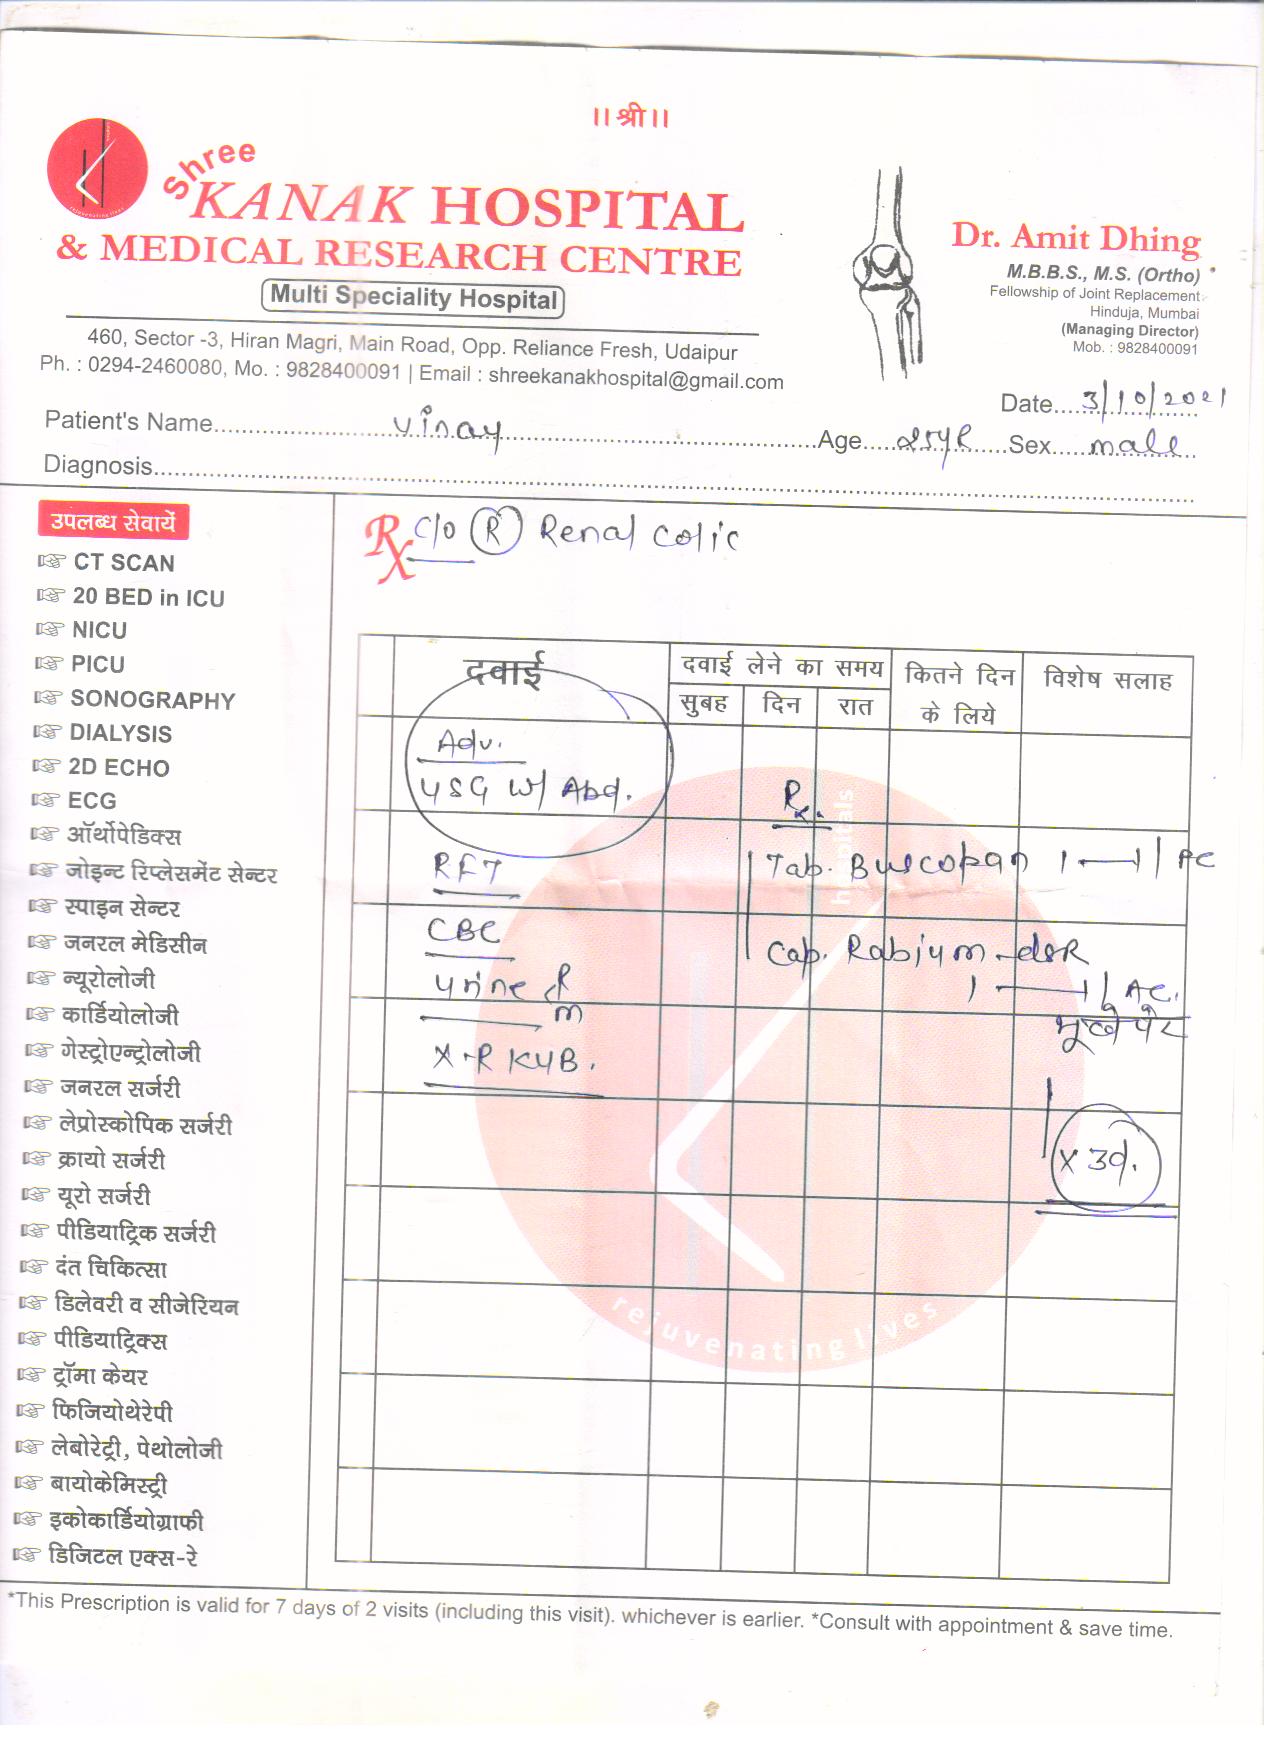 ।। श्री ।।
Shree
KANAK HOSPITAL
& MEDICAL RESEARCH CENTRE
Multi Speciality Hospital
460, Sector -3, Hiran Magri, Main Road, Opp. Reliance Fresh, Udaipur
Ph. : 0294-2460080, Mo. : 9828400091 | Email : shreekanakhospital@gmail.com
rejuvenating lives
Dr. Amit Dhing
M.B.B.S., M.S. (Ortho)
Fellowship of Joint Replacement
Hinduja, Mumbai
(Managing Director)
Mob. : 9828400091
Date 3/10/2021
Patient's Name vinay Age 25yR Sex male
Diagnosis
उपलब्ध सेवायें
CT SCAN
20 BED in ICU
NICU
PICU
SONOGRAPHY
DIALYSIS
2D ECHO
ECG
ऑर्थोपेडिक्स
जोइन्ट रिप्लेसमेंट सेन्टर
स्पाइन सेन्टर
जनरल मेडिसीन
न्यूरोलोजी
कार्डियोलोजी
गेस्ट्रोएन्ट्रोलोजी
जनरल सर्जरी
लेप्रोस्कोपिक सर्जरी
क्रायो सर्जरी
यूरो सर्जरी
पीडियाट्रिक सर्जरी
दंत चिकित्सा
डिलेवरी व सीजेरियन
पीडियाट्रिक्स
ट्रॉमा केयर
फिजियोथेरेपी
लेबोरेट्री, पेथोलोजी
बायोकेमिस्ट्री
इकोकार्डियोग्राफी
डिजिटल एक्स-रे
Rx C/O (R) Renal colic
दवाई दवाई लेने का समय कितने दिन के लिये विशेष सलाह
सुबह दिन रात
Adv.
USG W/ Abd.
RFT
CBC
Urine R/m
X-R KUB.
Rx.
Tab. Buscopan 1—1 PC
Cap. Rabium-dsR
1—1 AC.
भूखे पेट
x 3d.
hospitals
rejuvenating lives
*This Prescription is valid for 7 days of 2 visits (including this visit). whichever is earlier. *Consult with appointment & save time.